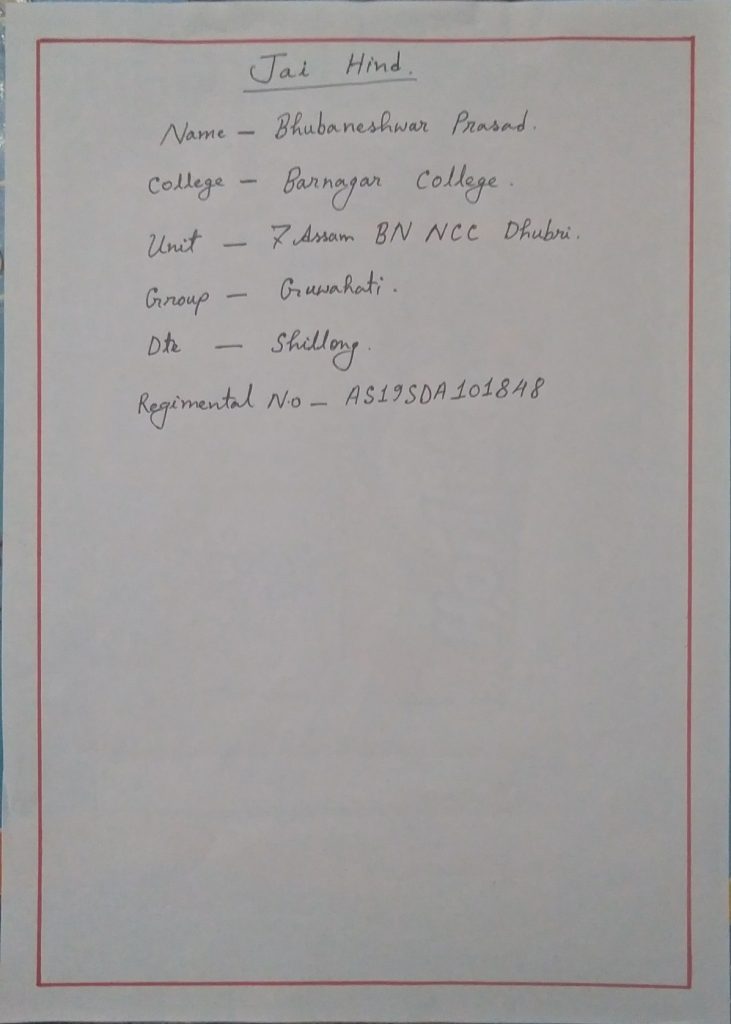 Jai Hind.
Name - Bhubaneshwar Prasad.
College - Barnagar College.
Unit - 7 Assam BN NCC Dhubri.
Group - Guwahati.
Dte - Shillong.
Regimental N.o - AS19SDA101848